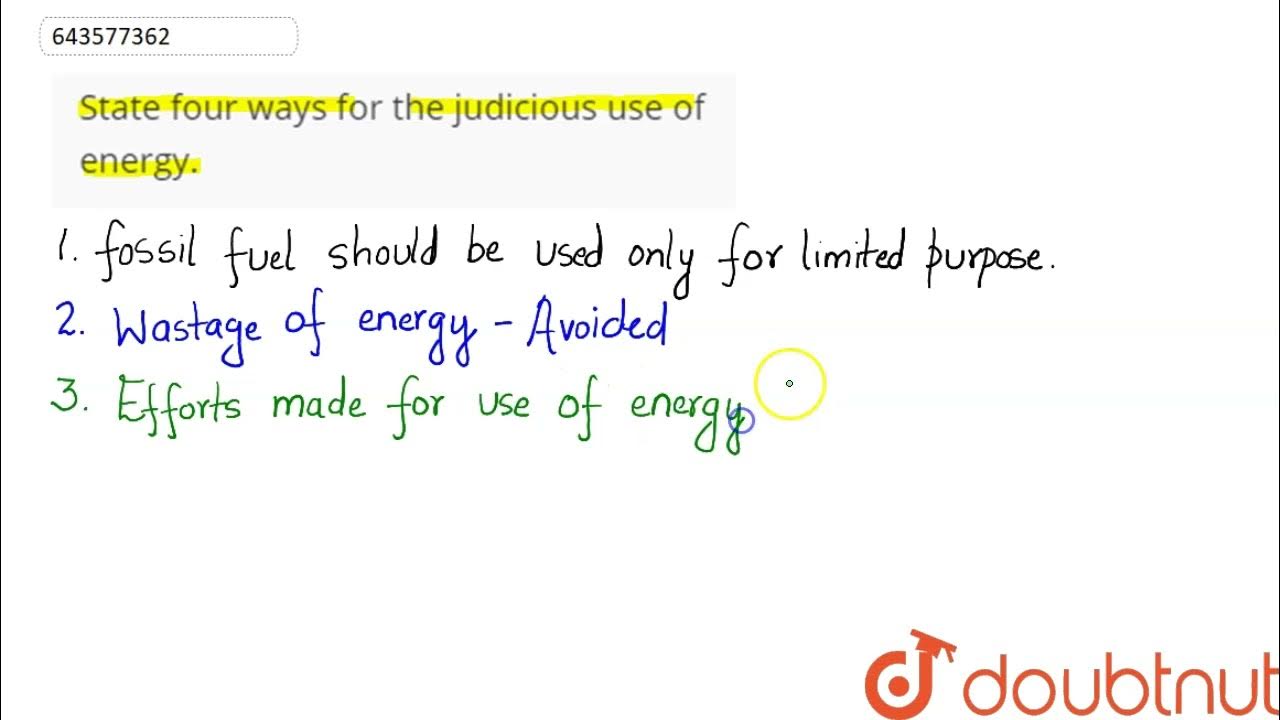 643577362
State four ways for the judicious use of
energy.
1. fossil fuel should be used only for limited purpose.
2. Wastage of energy - Avoided
3. Efforts made for use of energy
doubtnut